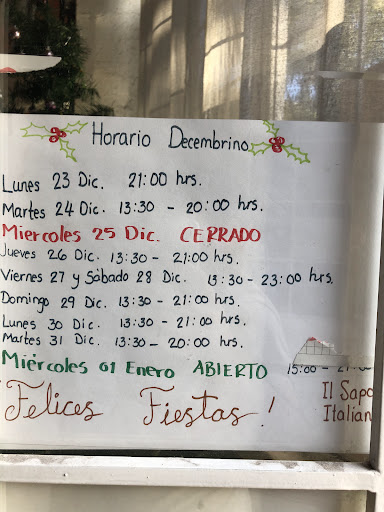 Horario Decembrino
Lunes 23 Dic. 21:00 hrs.
Martes 24 Dic. 13:30 - 20:00 hrs.
Miercoles 25 Dic. CERRADO
Jueves 26 Dic. 13:30 - 21:00 hrs.
Viernes 27 y Sábado 28 Dic. 13:30 - 23:00 hrs.
Domingo 29 Dic. 13:30 - 21:00 hrs.
Lunes 30 Dic. 13:30 - 21:00 hrs.
Martes 31 Dic. 13:30 - 20:00 hrs.
Miércoles 01 Enero ABIERTO 15:00 -
¡Felices Fiestas!
Il Sapo
Italian